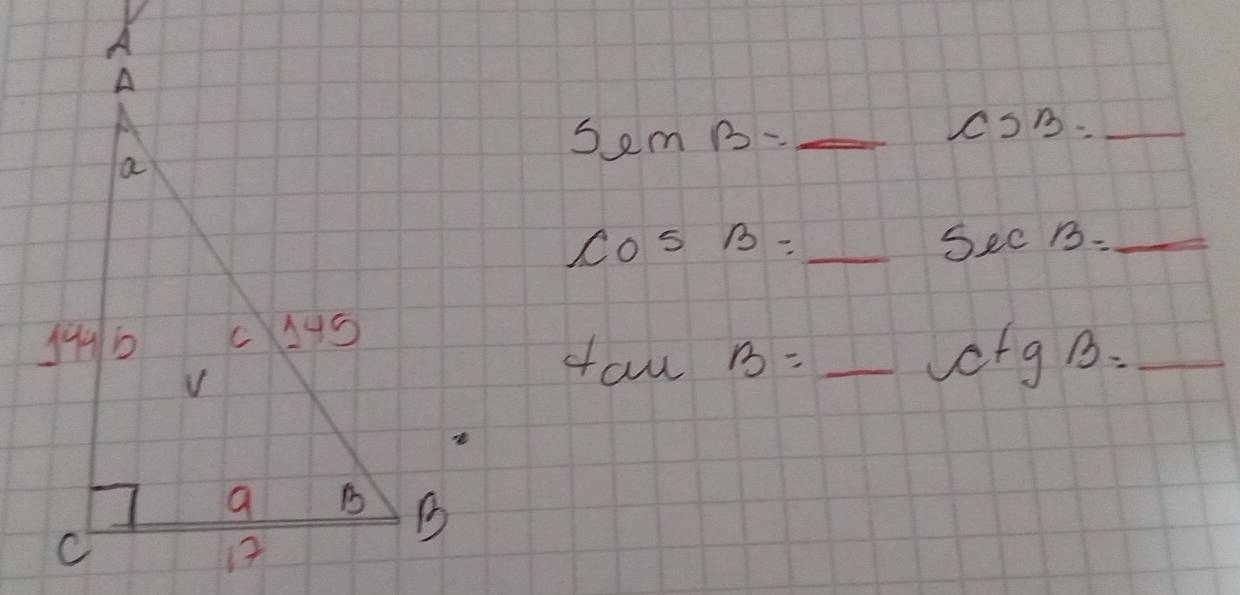 A
A
A
a
Sem B = ___ csB = ___
cos B = ___ Sec B = ___
144 b c 145
tau B = ___ ctg B = ___
V
a B B
C 17